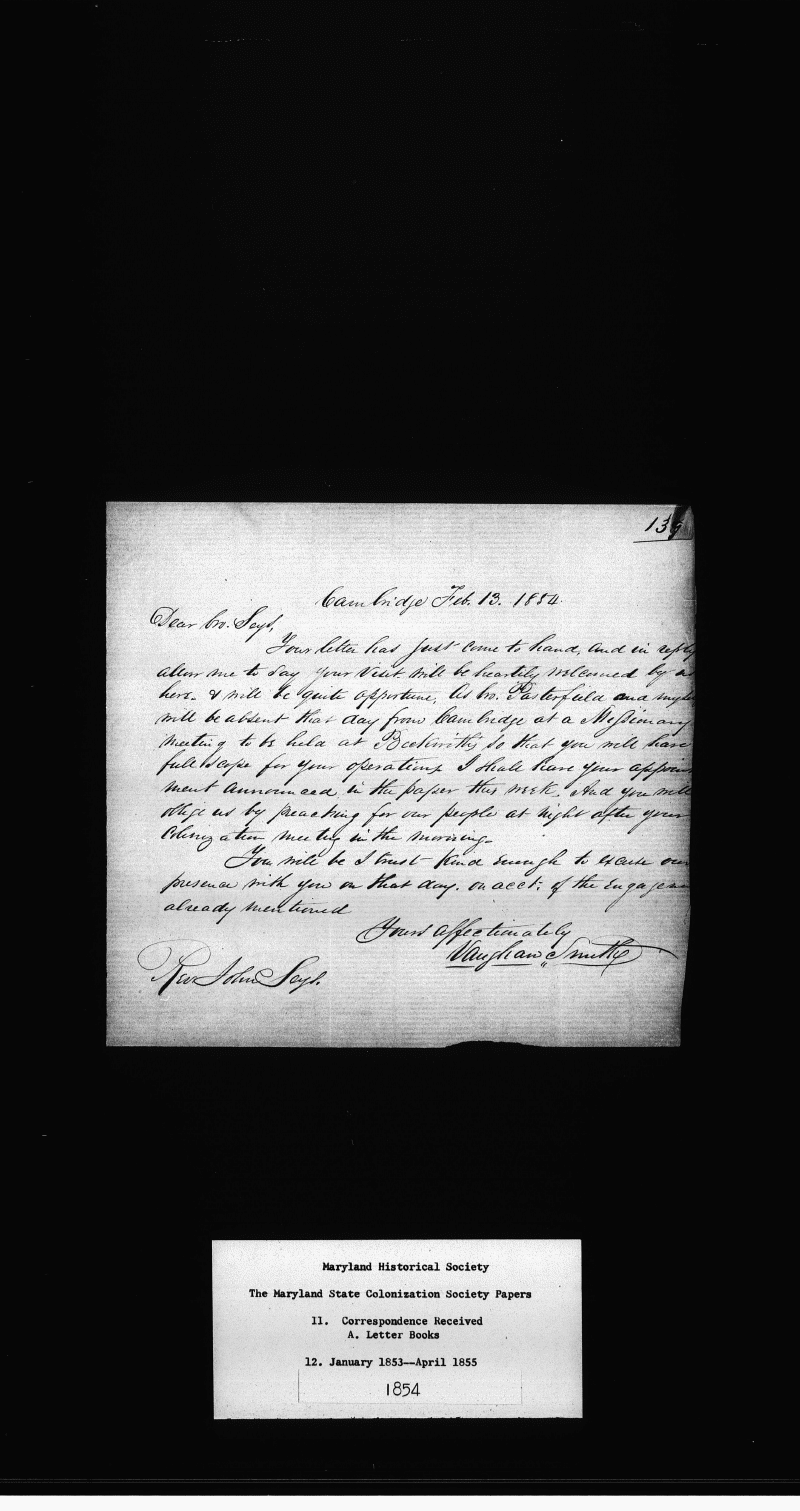 139
Cambridge Feb. 13. 1854.
Dear bro. Seys,
Your letter has just come to hand, and in reply
allow me to say your visit will be heartily welcomed by us
here. & will be quite opportune, As bro. and myself
will be absent that day from Cambridge at a Missionary
meeting to be held at Beckwiths, so that you will have
full scope for your operations. I shall have your appoint
ment announced in the paper this week. And you will
oblige us by preaching for our people at night after your
Colonization meeting in the morning.
You will be I trust kind enough to excuse our
presence with you on that day. on acct. of the Engagem
already mentioned
Yours affectionately
Vaughan Smith
Rev John Seys.
Maryland Historical Society
The Maryland State Colonization Society Papers
11. Correspondence Received
A. Letter Books
12. January 1853--April 1855
1854